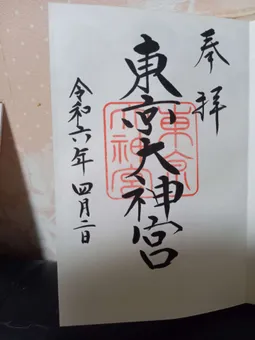 奉拝
東京大神宮
令和六年 四月二日
東京大神宮